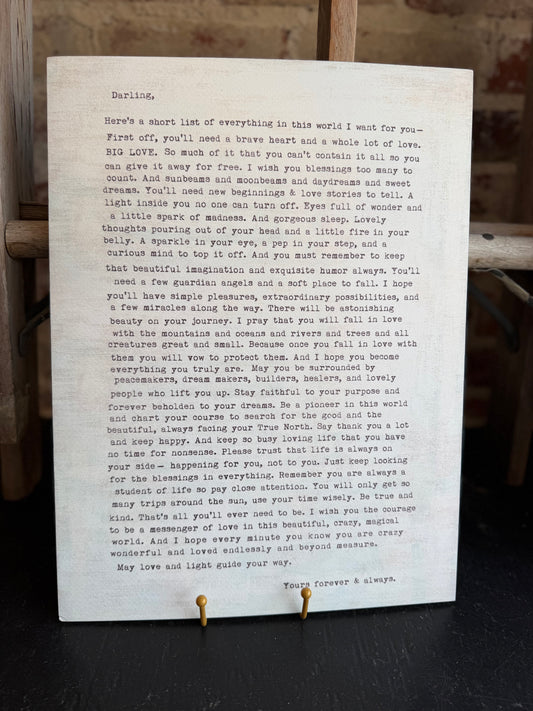 Darling,
Here's a short list of everything in this world I want for you—
First off, you'll need a brave heart and a whole lot of love.
BIG LOVE. So much of it that you can't contain it all so you
can give it away for free. I wish you blessings too many to
count. And sunbeams and moonbeams and daydreams and sweet
dreams. You'll need new beginnings & love stories to tell. A
light inside you no one can turn off. Eyes full of wonder and
a little spark of madness. And gorgeous sleep. Lovely
thoughts pouring out of your head and a little fire in your
belly. A sparkle in your eye, a pep in your step, and a
curious mind to top it off. And you must remember to keep
that beautiful imagination and exquisite humor always. You'll
need a few guardian angels and a soft place to fall. I hope
you'll have simple pleasures, extraordinary possibilities, and
a few miracles along the way. There will be astonishing
beauty on your journey. I pray that you will fall in love
with the mountains and oceans and rivers and trees and all
creatures great and small. Because once you fall in love with
them you will vow to protect them. And I hope you become
everything you truly are. May you be surrounded by
peacemakers, dream makers, builders, healers, and lovely
people who lift you up. Stay faithful to your purpose and
forever beholden to your dreams. Be a pioneer in this world
and chart your course to search for the good and the
beautiful, always facing your True North. Say thank you a lot
and keep happy. And keep so busy loving life that you have
no time for nonsense. Please trust that life is always on
your side— happening for you, not to you. Just keep looking
for the blessings in everything. Remember you are always a
student of life so pay close attention. You will only get so
many trips around the sun, use your time wisely. Be true and
kind. That's all you'll ever need to be. I wish you the courage
to be a messenger of love in this beautiful, crazy, magical
world. And I hope every minute you know you are crazy
wonderful and loved endlessly and beyond measure.
May love and light guide your way.
Yours forever & always.